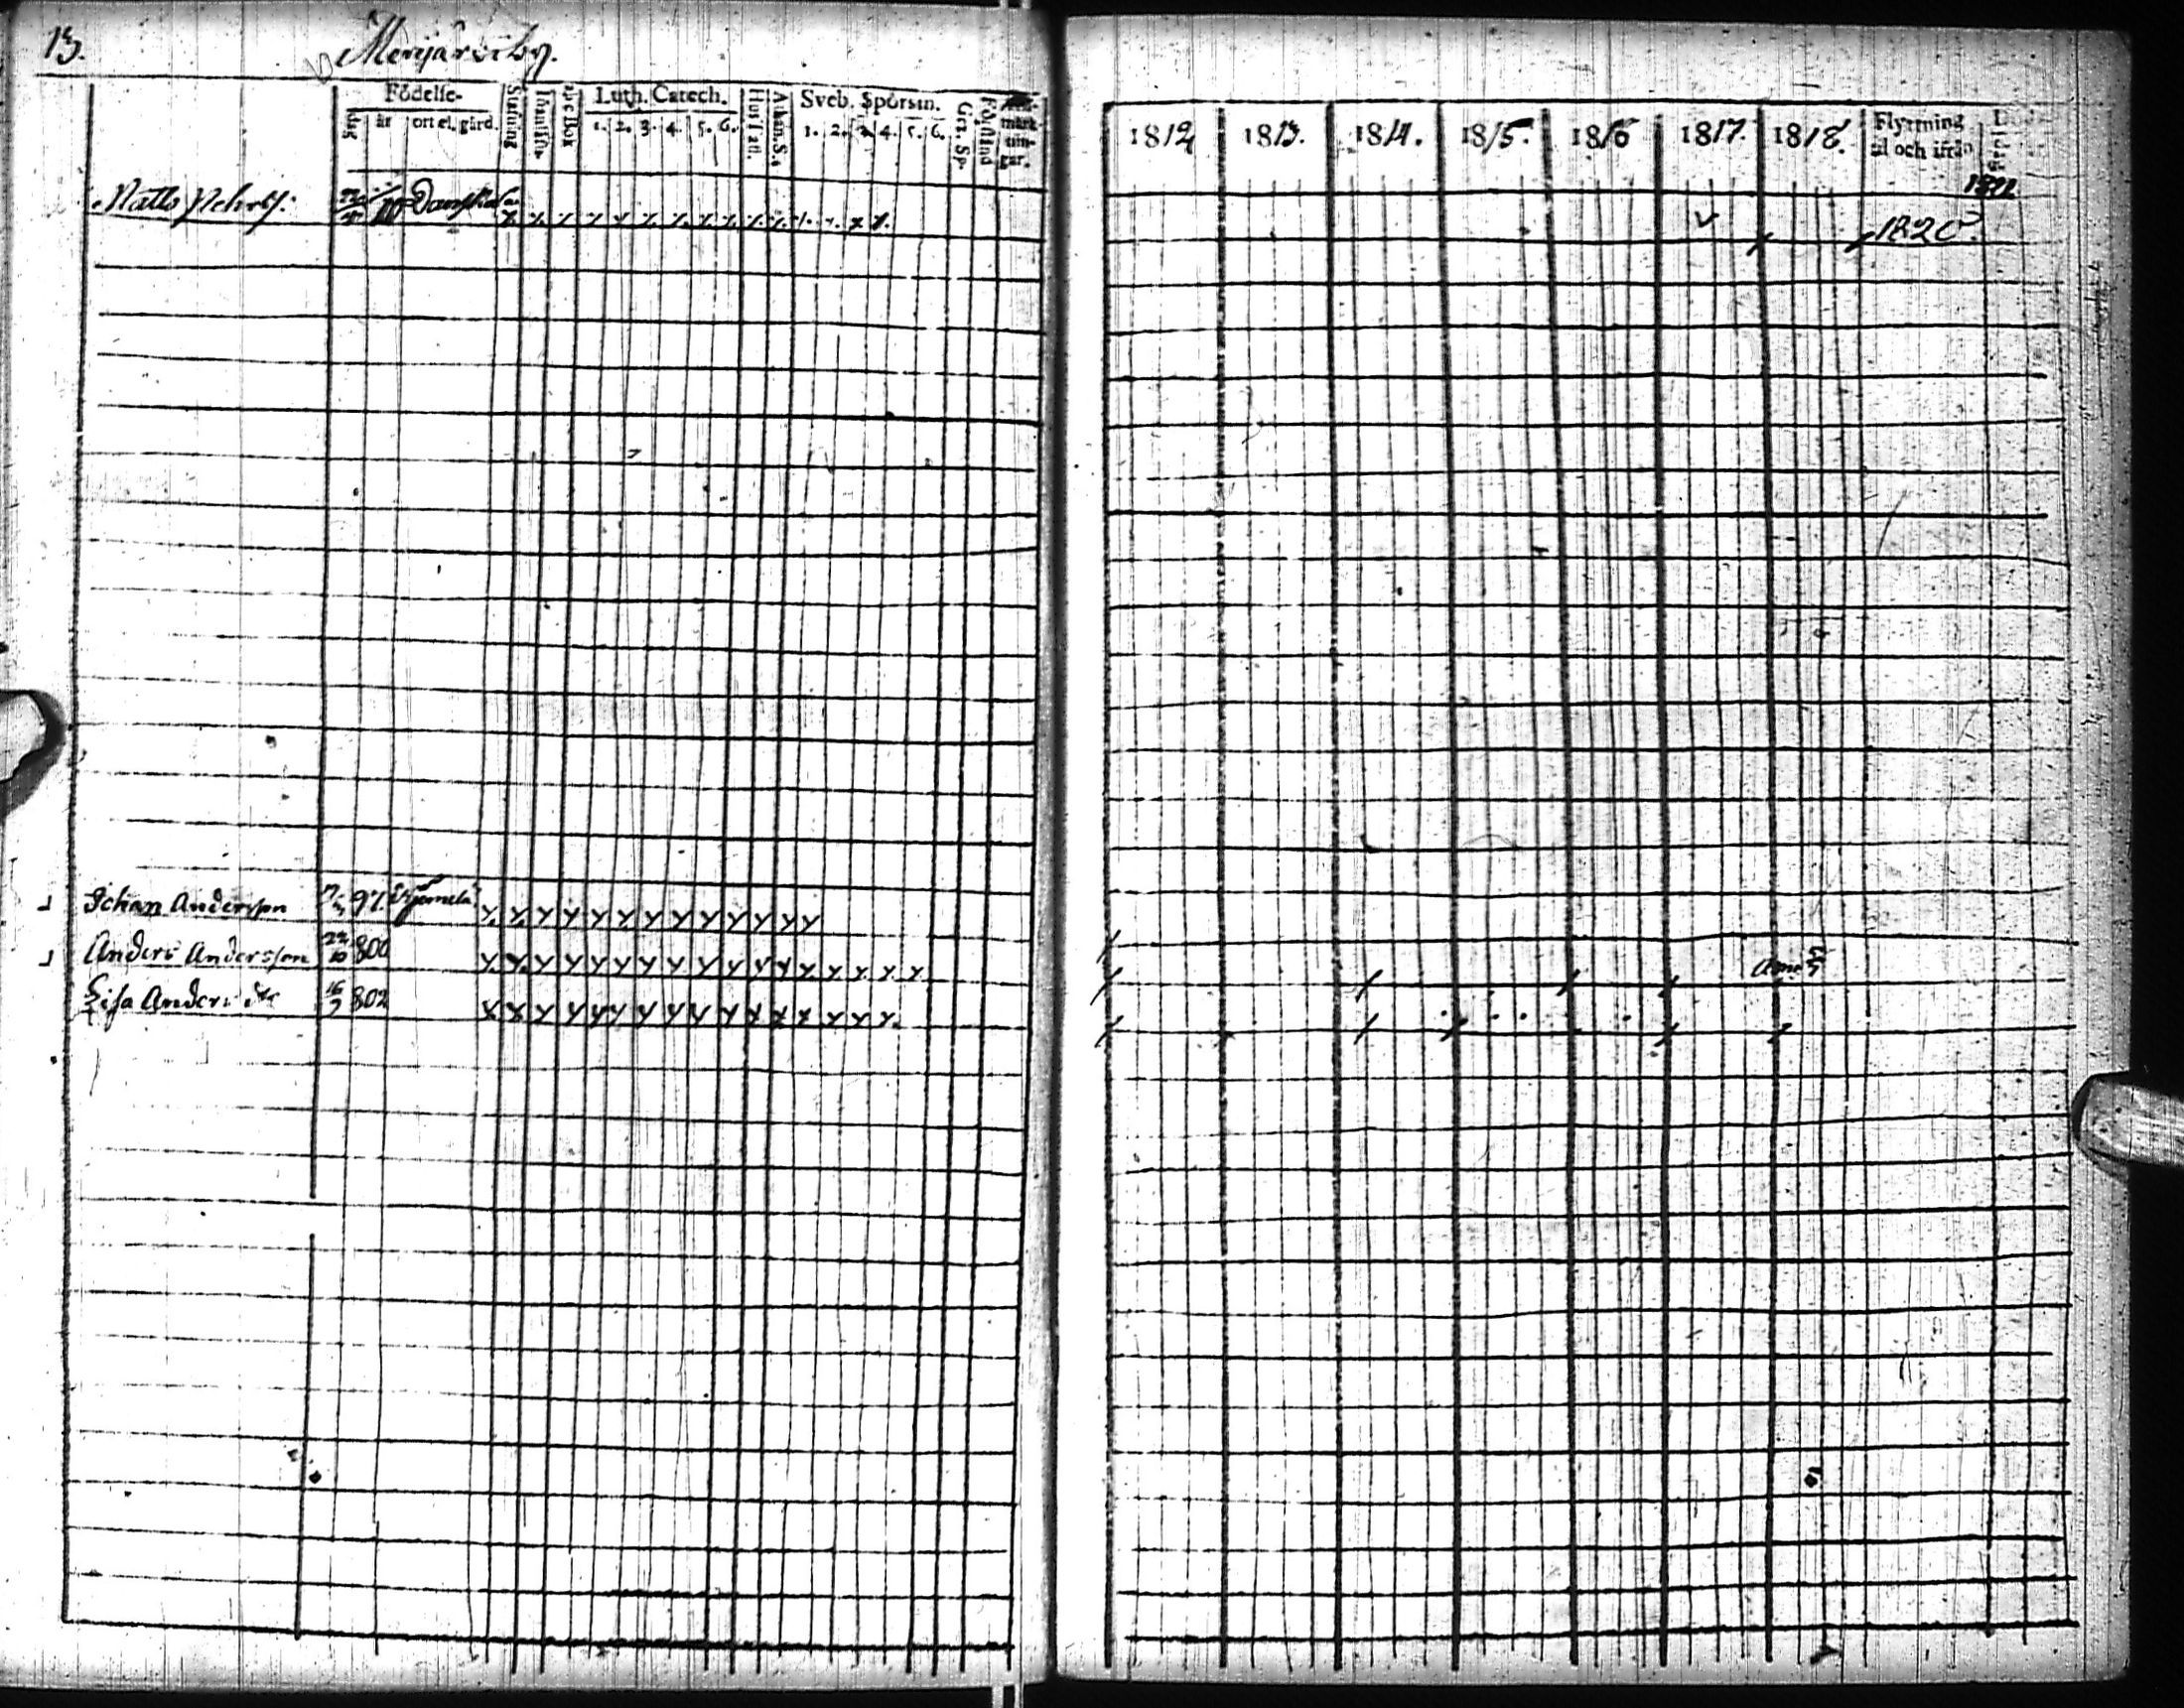 13.
Merijärvi by.
Födelse-
dag
år
ort el. gård.
Stafning
Luth. Catech.
1. 2. 3. 4. 5. 6.
Hus Tafl.
Athan. S.
Sveb. Spörsm.
1. 2. 3. 4. 5. 6.
Gez. Sp.
Förstånd
märk-
nin-
gar.
Matts Pehrss.
Johan Andersson 97.
Anders Andersson 22/10 800
Lisa Anders dr 16/7 802
1812 1813. 1814. 1815. 1816 1817. 1818.
Flyttning
til och ifrån
1822
1820.